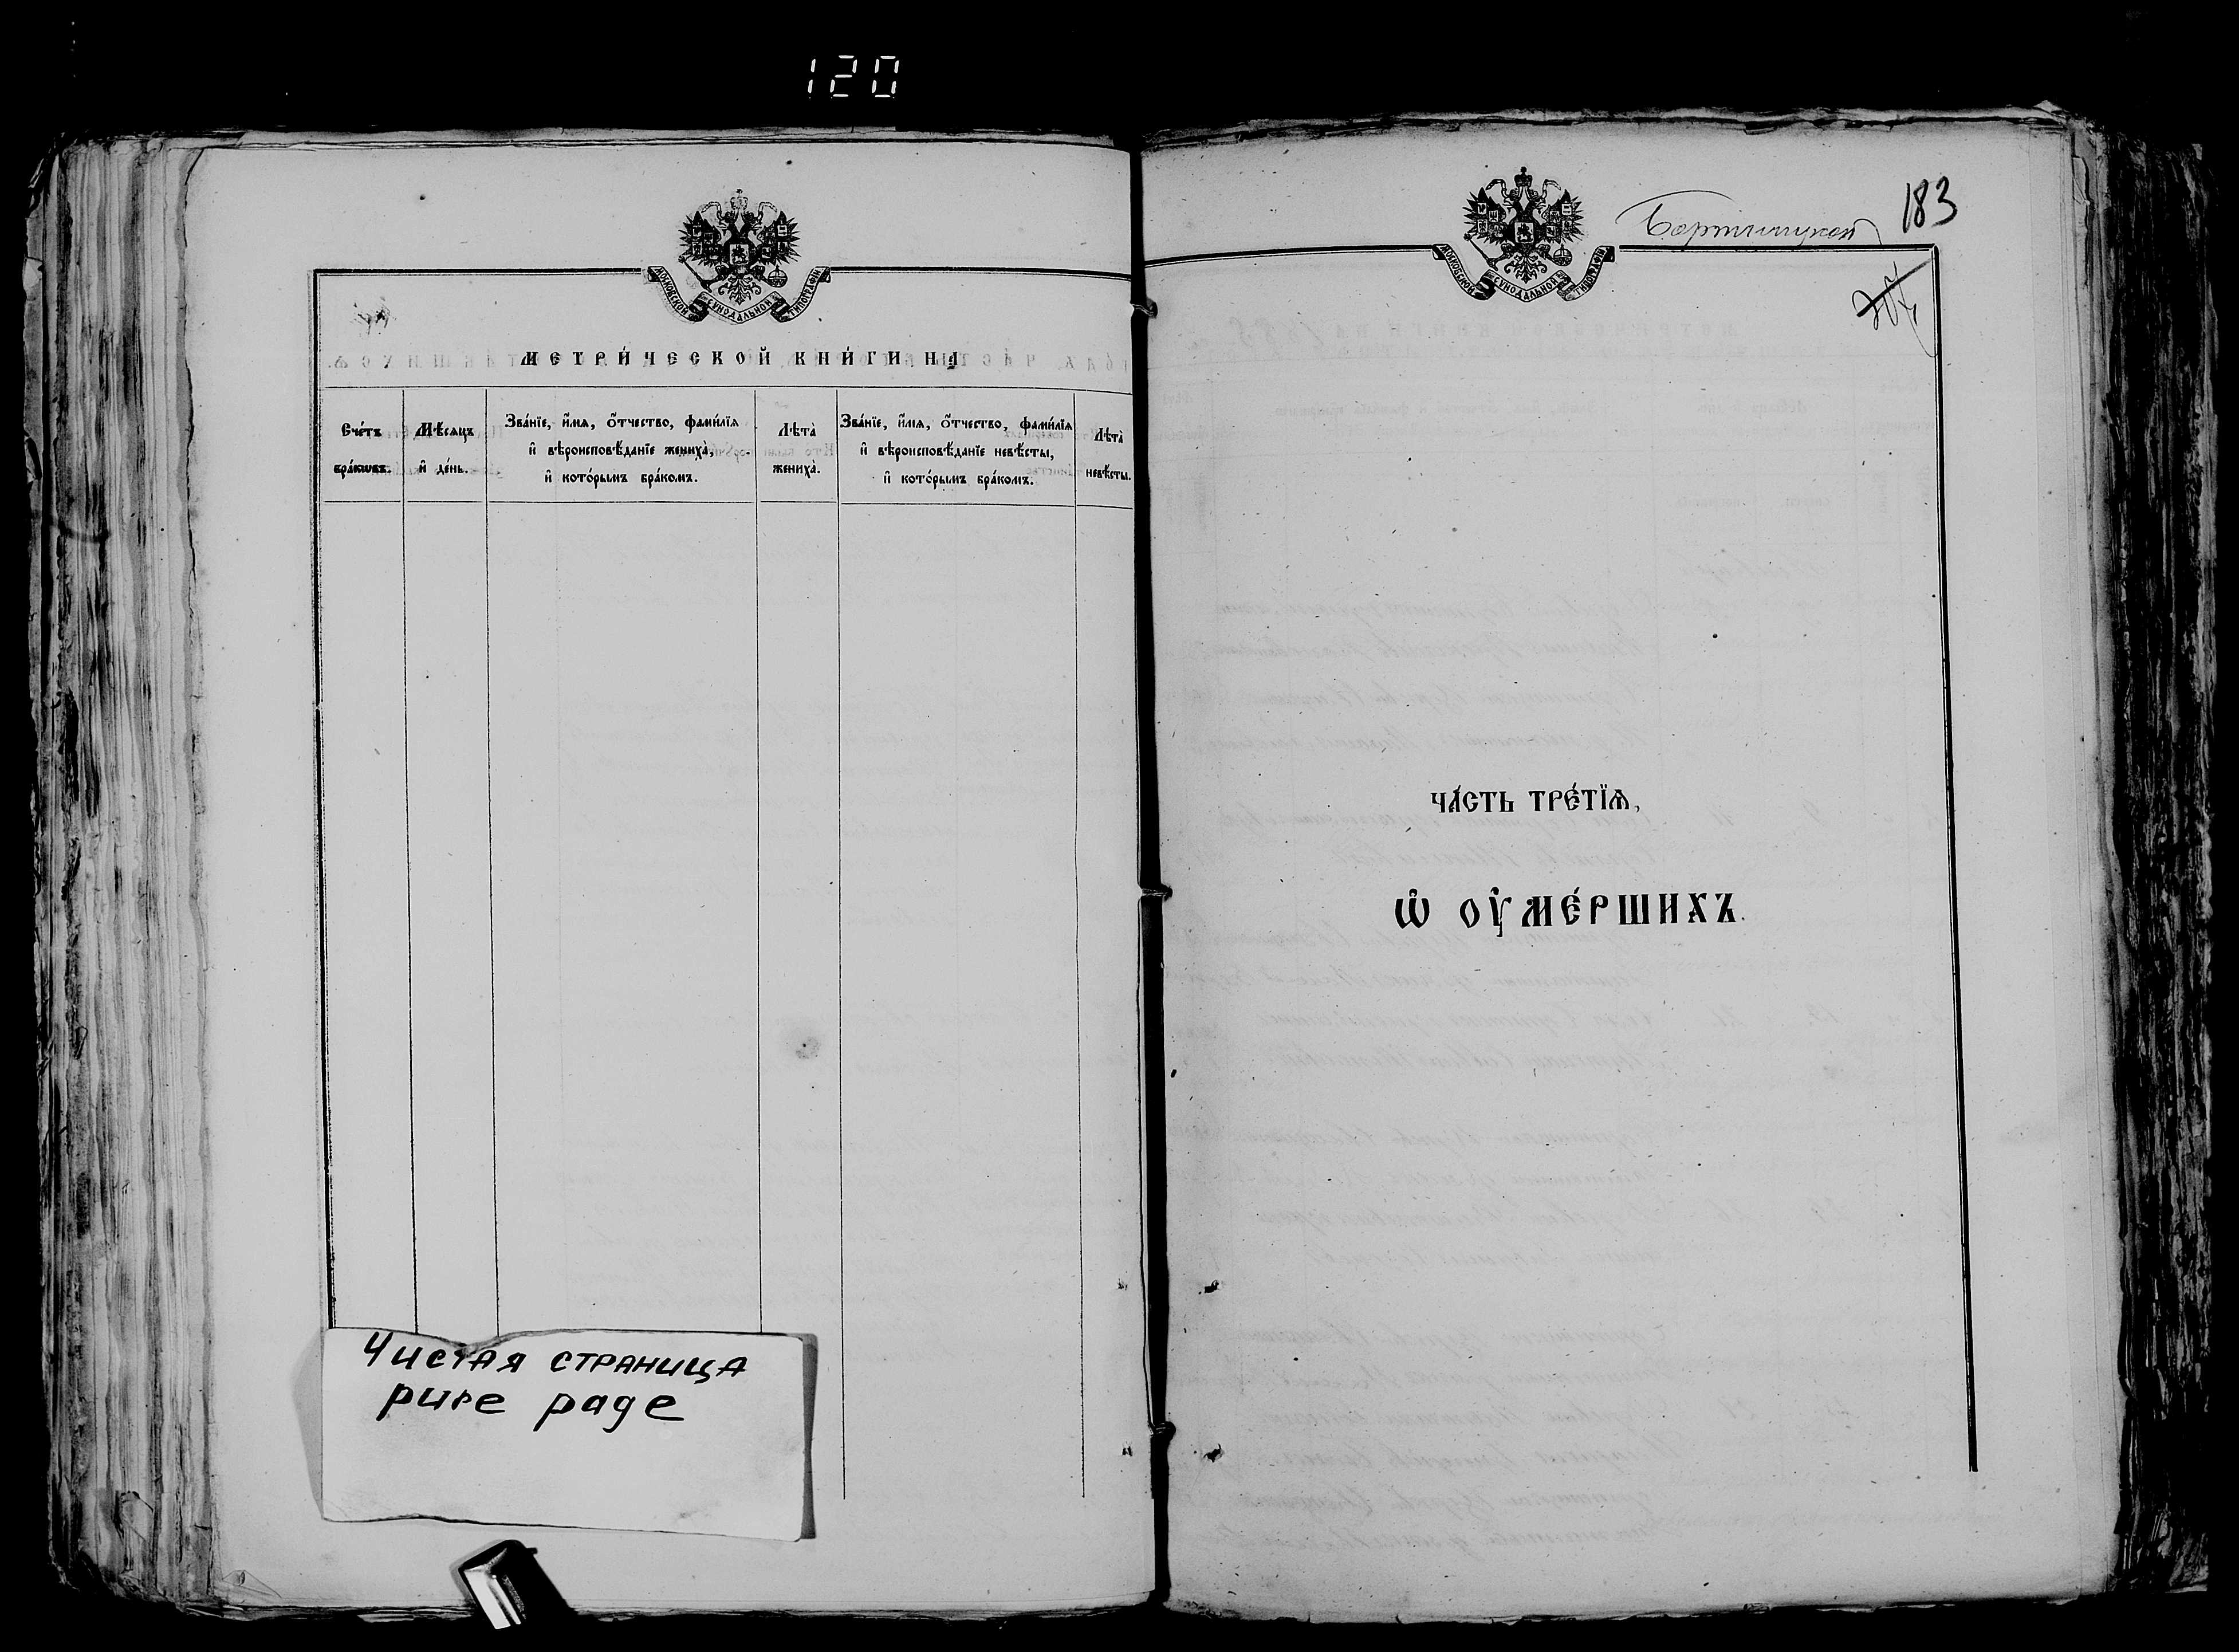 120
МОСКОВСКОЙ СѴНОДАЛЬНОЙ ТИПОГРАФІИ
МЕТРИ́ЧЕСКОЙ КНИ́ГИ НА
Сче́тъ бра́кѡвъ.
Мѣ́сяцъ и҆ де́нь.
Зва́нїе, и҆́мѧ, ѻ҆́тчество, фами́лїѧ
и҆ вѣроисповѣ́данїе жениха̀,
и҆ кото́рымъ бра́комъ.
Лѣта̀ жениха̀.
Зва́нїе, и҆́мѧ, ѻ҆́тчество, фами́лїѧ
и҆ вѣроисповѣ́данїе невѣ́сты,
и҆ кото́рымъ бра́комъ.
Лѣта̀ невѣ́сты.
Чистая страница
pure page
183
МОСКОВСКОЙ СѴНОДАЛЬНОЙ ТИПОГРАФІИ
ЧА́СТЬ ТРЕ́ТЇѦ,
Ѡ҆ ОУ҆МЕ́РШИХЪ.